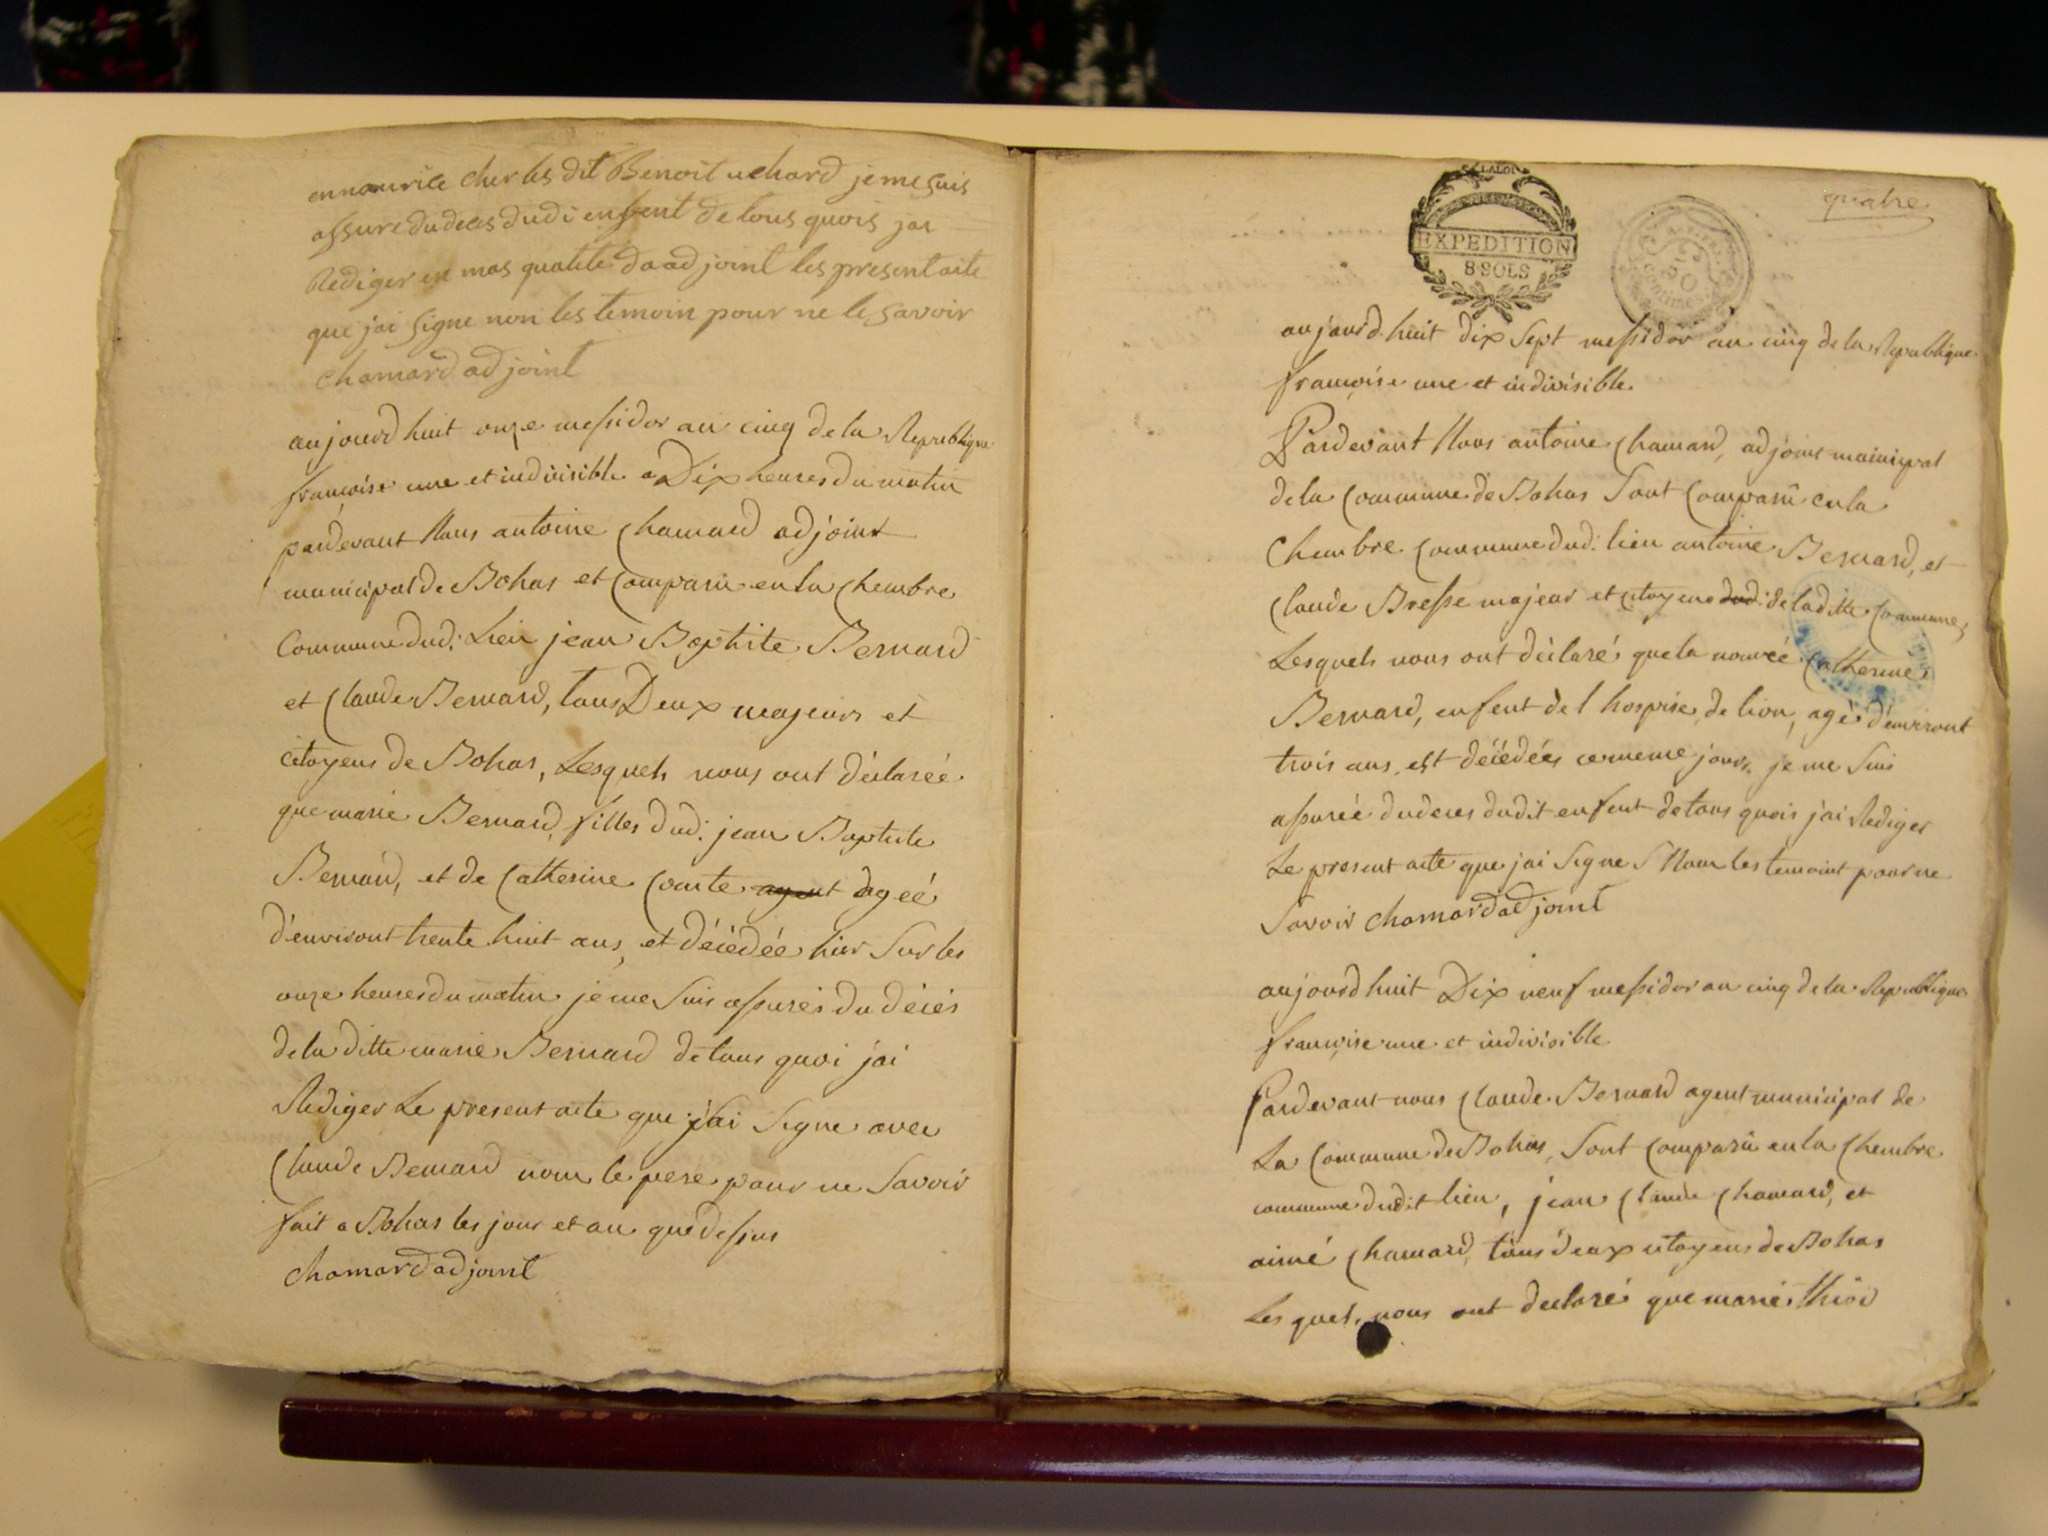 en nourrice cher les dit Benoit uchard je me suis
assure du deces dudi enfent de tous quois jai
Rediger en mas qualite da adjoint les present aite
que jai signe non les temoin pour ne le savoir
chamard adjoint
aujourdhuit onze messidor an cinq de la Republique
francoise une et indivisible a Dix heures du matin
pardevant Nous antoine Chamard adjoint
municipal de Bohas et Comparu en la Chembre
Commune dud: Lieu jean Baptite Bernard
et Claude Bernard, tous Deux majeurs et
citoyens de Bohas, Lesquels nous ont déclareé
que marie Bernard, filles dud: jean Baptiste
Bernard, et de Catherine Convte agent ageé
d'environt trente huit ans, et décédée hier Sur les
onze heures du matin je me Suis assurés du décés
de la ditte marie Bernard de tous quoi jai
Rediger Le present acte que j'ai Signe avec
Claude Bernard nom le pere pour ne Savoir
fait a Bohas les jour et an que dessus
chamard adjoint
LA LOI
EXPEDITION
8 SOLS
50
centimes
quatre
aujourd.huit dix Sept messidor an cinq de la Republique
francoise une et indivisible
Pardevant Nous antoine Chamard, adjoint municipal
de la Commune de Bohas Sont Comparu en la
Chembre Commune dud: lieu antoine Bernard, et
Claude Bresse majeur et citoyens dud: de la ditte Commune,
Lesquels nous ont déclaré que la nomeé Catherine
Bernard, enfent de l hospise de lion, agé d'environt
trois ans, est décédées ce meme jour, je me Suis
assureé du deces dudit enfent de tous quois j'ai Rediger
Le present acte que jai Signe S Nom les temoint pour ne
Savoir chamard adjoint
aujourdhuit Dix neuf messidor an cinq de la Republique
francoise une et indivisible
Pardevant nous Claude Bernard agent municipal de
La Commune de Bohas, Sont Comparu en la Chembre
commune dudit lieu, jean Claude Chamard, et
aimé Chamard, tous deux citoyens de Bohas
Lesquels nous ont declaré que marie